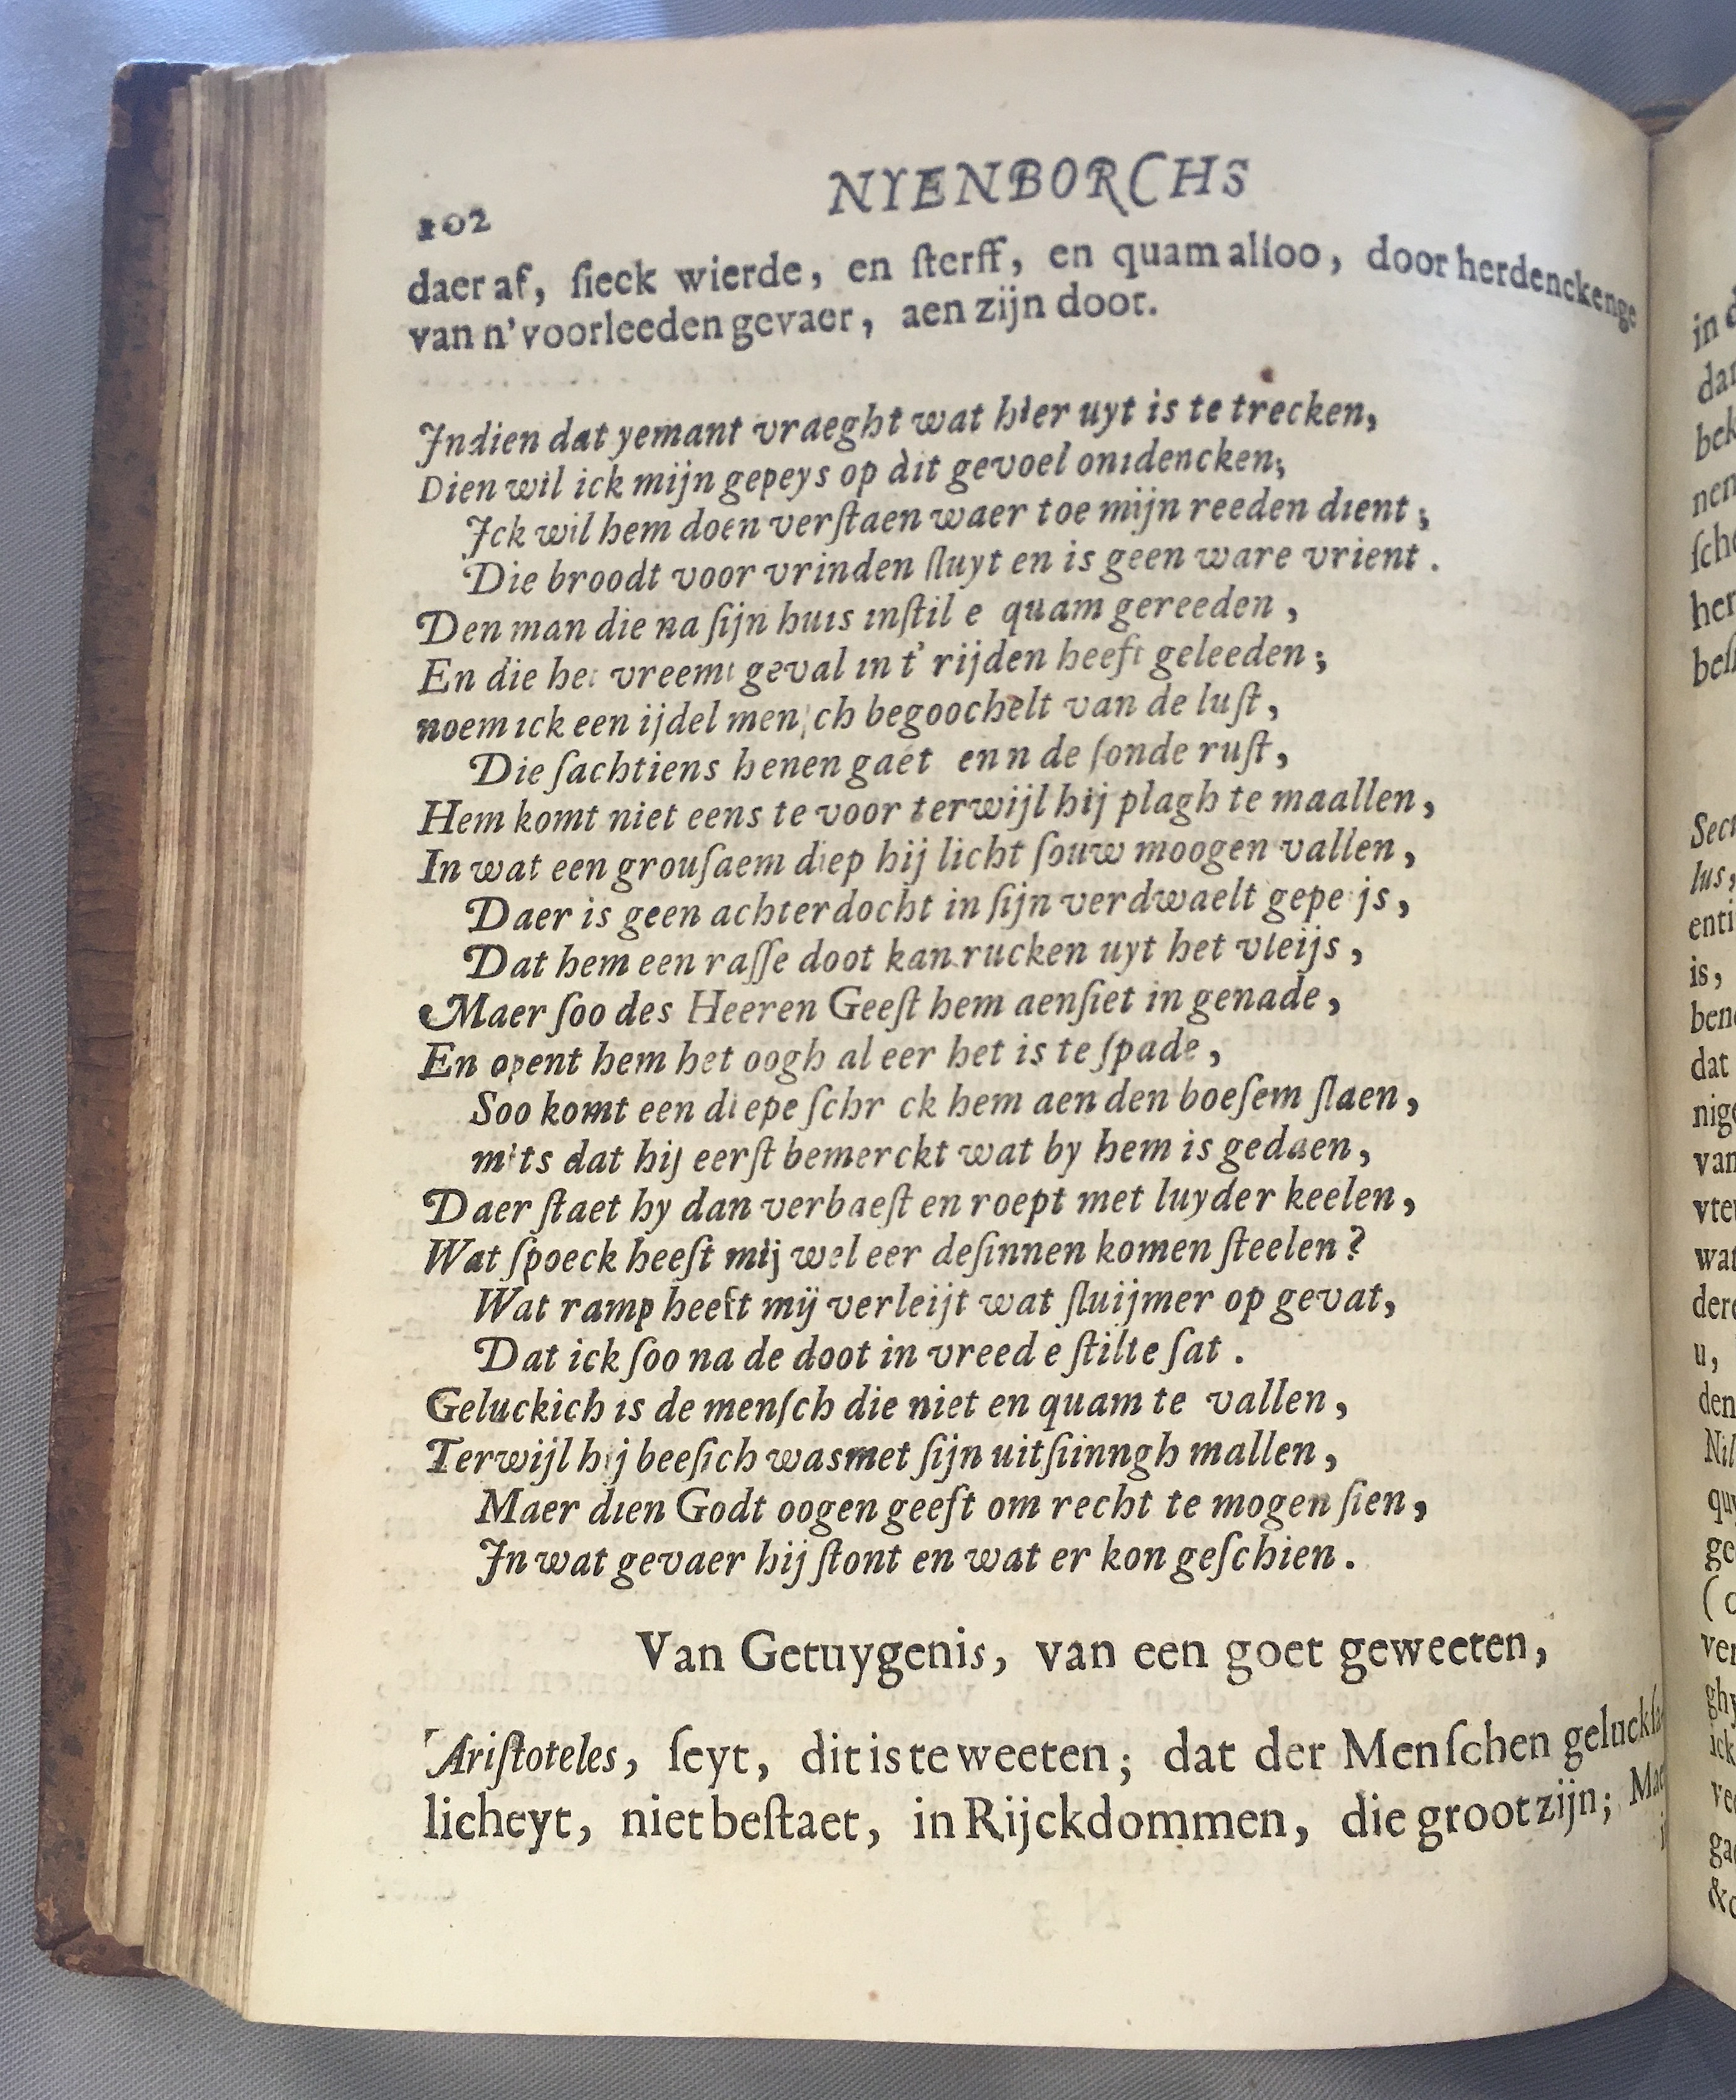 102
NYENBORCHS
daer af, ſieck wierde, en ſterff, en quam alſoo, door herdenckenge
van n' voorleeden gevaer, aen zijn doot.
Indien dat yemant vraeght wat hier uyt is te trecken,
Dien wil ick mijn gepeys op dit gevoel ontdencken;
Ick wil hem doen verſtaen waer toe mijn reeden dient;
Die broodt voor vrinden ſluyt en is geen ware vrient.
Den man die na ſijn huis inſtil e quam gereeden,
En die het vreemt geval in t' rijden heeft geleeden;
noem ick een ijdel menſch begoochelt van de luſt,
Die ſachtiens henen gaet en n de ſonde ruſt,
Hem komt niet eens te voor terwijl hij plagh te maallen,
In wat een grouſaem diep hij licht ſouw moogen vallen,
Daer is geen achterdocht in ſijn verdwaelt gepe js,
Dat hem een raſſe doot kan rucken uyt het vleijs,
Maer ſoo des Heeren Geeſt hem aenſiet in genade,
En opent hem het oogh al eer het is te ſpade,
Soo komt een diepe ſchr ck hem aen den boeſem ſlaen,
mits dat hij eerſt bemerckt wat by hem is gedaen,
Daer ſtaet hy dan verbaeſt en roept met luyder keelen,
Wat ſpoeck heeſt mij wel eer deſinnen komen ſteelen?
Wat ramp heeft mij verleijt wat ſluijmer op gevat,
Dat ick ſoo na de doot in vreed e ſtilte ſat.
Geluckich is de menſch die niet en quam te vallen,
Terwijl hij beeſich was met ſijn uitſiinngh mallen,
Maer dien Godt oogen geeft om recht te mogen ſien,
In wat gevaer hij ſtont en wat er kon geſchien.
Van Getuygenis, van een goet geweeten,
Ariſtoteles, ſeyt, dit is te weeten; dat der Menſchen
licheyt, niet beſtaet, in Rijckdommen, die groot zijn;
in
is,
dat
van
u,
den